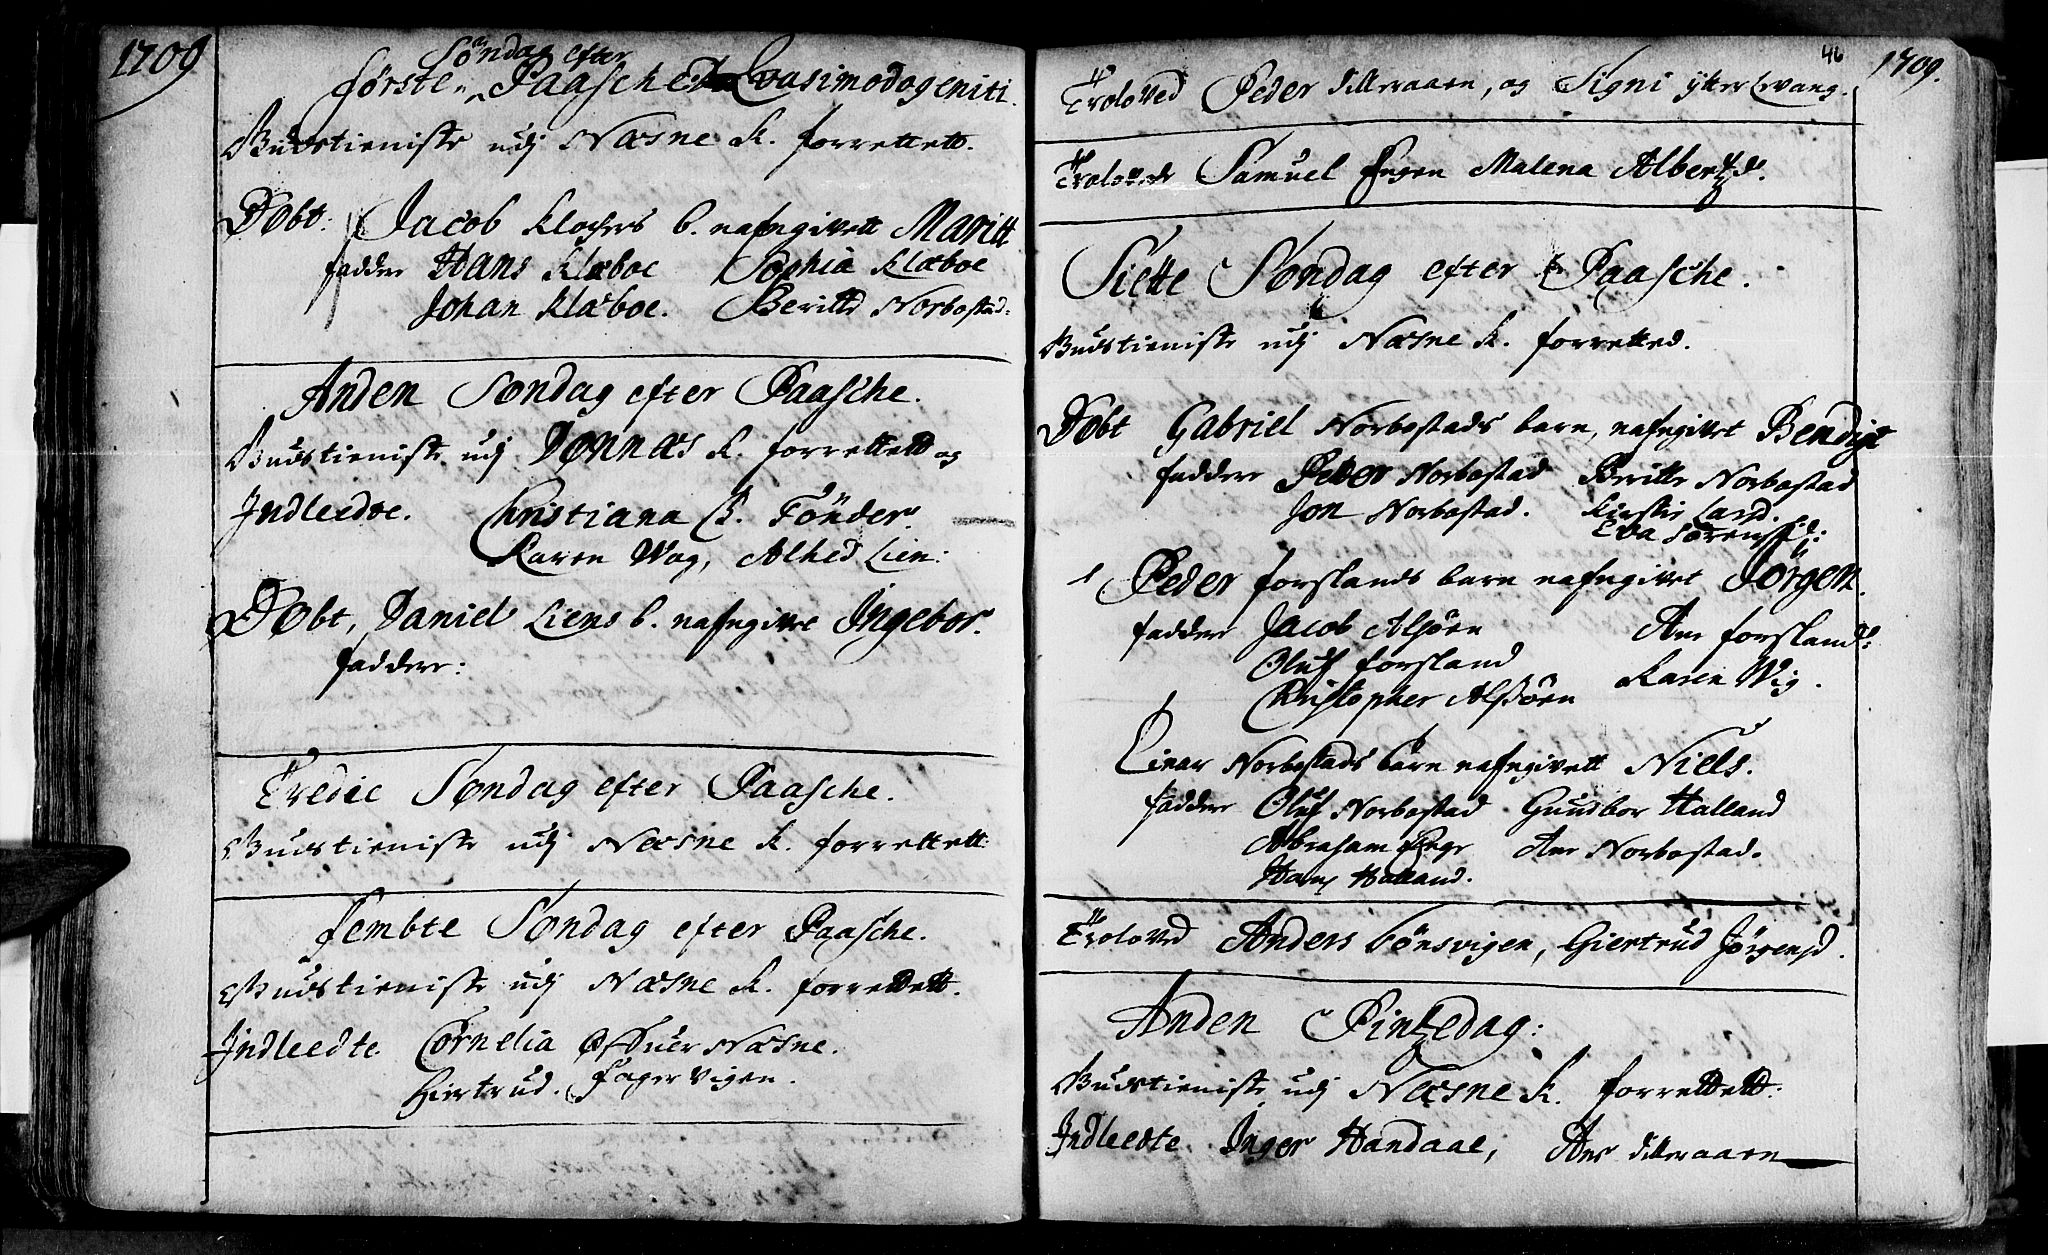 1709
Søndag efter
første Paasche Qvasimodogeniti.
Gudstieniste udj Næsne K. forrettett.
Døbt: Jacob Klochers b. nafngivett Maritt
fadder Hans Klæboe Sophia Klæboe
Johan Klæboe. Beritte Norbostad:
Anden Søndag efter Paasche.
Gudstieniste udj Dønnæs K. forrettett og
Indleedde. Christiana B. Tönder.
Karen Wog, Alhed Lien:
Døbt, Daniel Liens b. nafngivet Ingebor.
faddere:
Tredie Søndag efter Paasche.
Gudstieniste udj Næsne K. forrettett:
Fembte Søndag efter Paasche.
Gudstieniste udj Næsne K. forrettett.
Indleedte Cornelia Næsne.
Giertrud Fagervigen.
46
1709.
Troloved Peder Silleraaen, og Signi ytter Levang.
Trolovede Samuel Malena Albertzd.
Siette Søndag efter Paasche.
Gudstieniste udj Næsne K. forretted.
Døbt Gabriel Norbostads barn, nafngivet Bendigt
faddere Peder Norbostad Beritte Norbostad
Jon Norbostad. Kirstie Land.
Eva Sørensd:
Peder forslands barn nafngivet Jörgen.
faddere Jacob Alsöen An forsland:
Oluf forsland Karen Wig.
Christopher Alsöen
Einar Norbostads barn nafngivett Niels.
faddere Oluf Norbostad Gundbor Halland
Abraham An Norbostad.
Hans Halland.
Troloved Anders bönsvigen, Giertrud Jørgensd.
Anden Pintzedag:
Gudstieniste udj Næsne K. forrettett:
Indleedte Inger Handaal, Ane Silleraaen